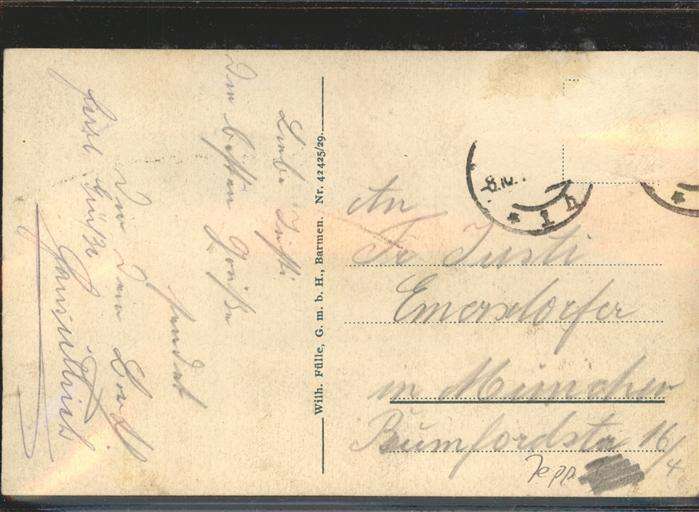 Liebe Justi
Die besten Grüße
sendet
Dir Dein
herzl. Grüße
Wilh. Fülle, G. m. b. H., Barmen. Nr. 42425/29.
8.10.
An
Fr Justi
Emersdorfer
in München
Rumfordstr 16/4
Zepp